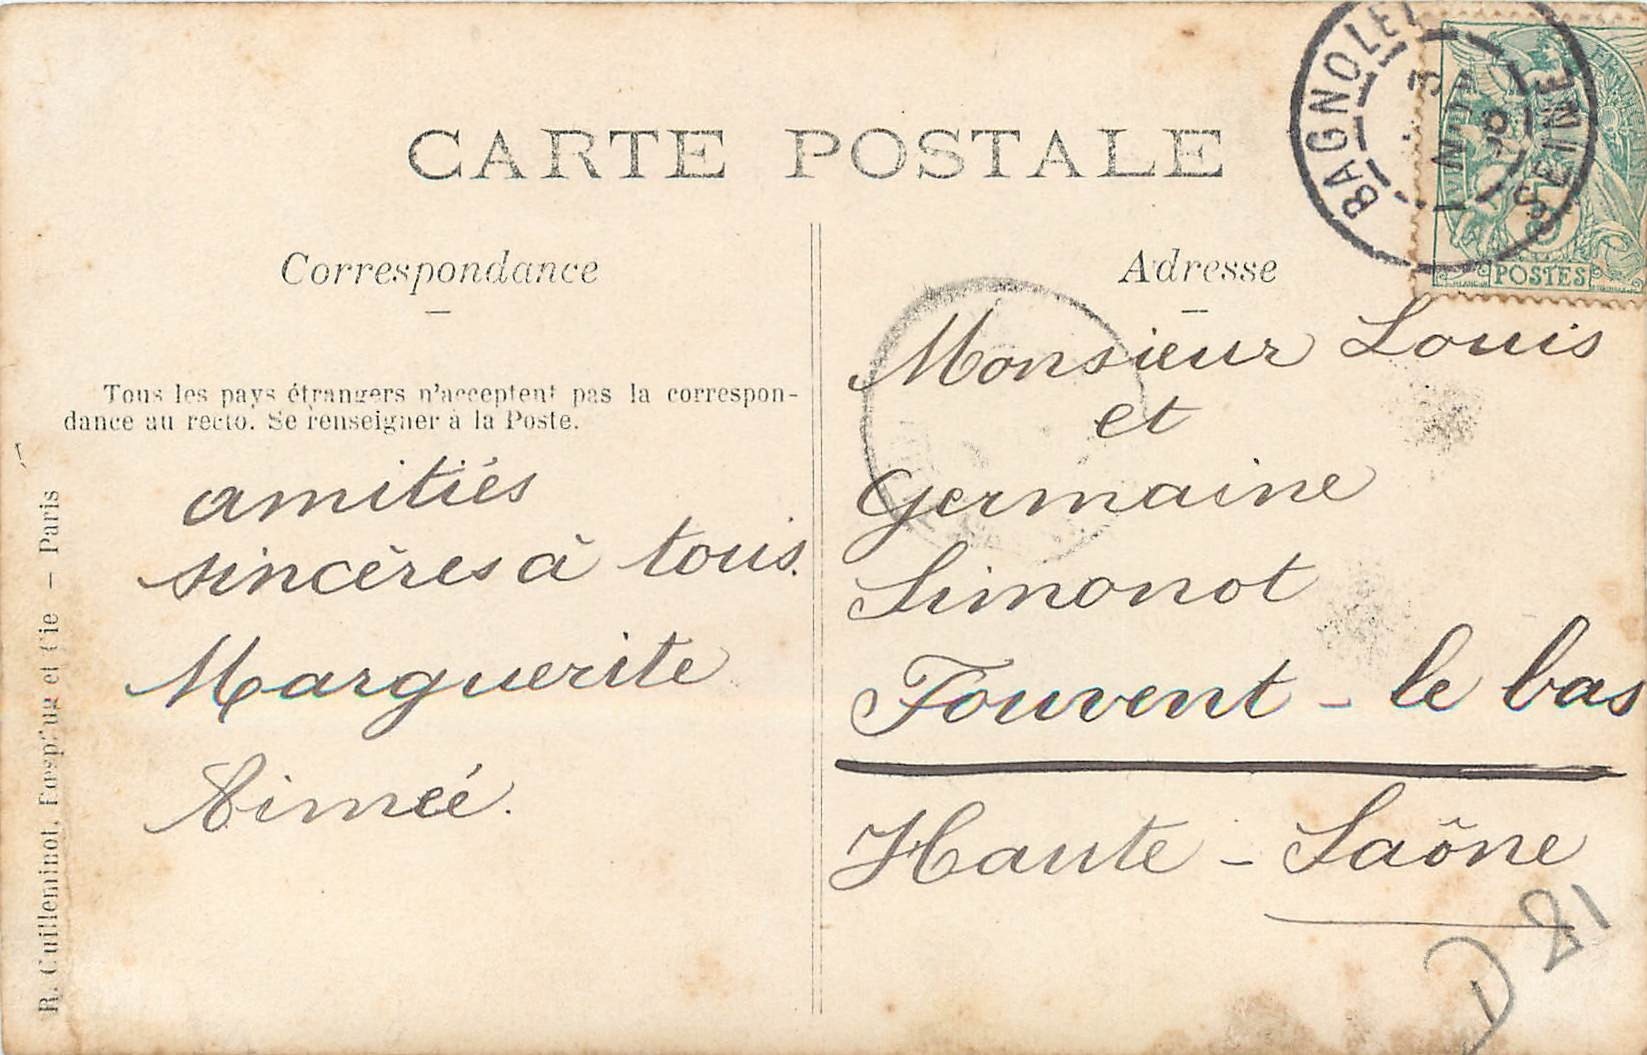 CARTE POSTALE
Correspondance
Tous les pays étrangers n'acceptent pas la correspon-
dance au recto. Se renseigner à la Poste.
amitiés
sincères à tous.
Marguerite
Aimée.
R. Guilleminot, Bœspflug et Cie – Paris
Adresse
BAGNOLET
SEINE
3
POSTES
Monsieur Louis
et
Germaine
Simonot
Fouvent - le bas
Haute - Saône
D 21